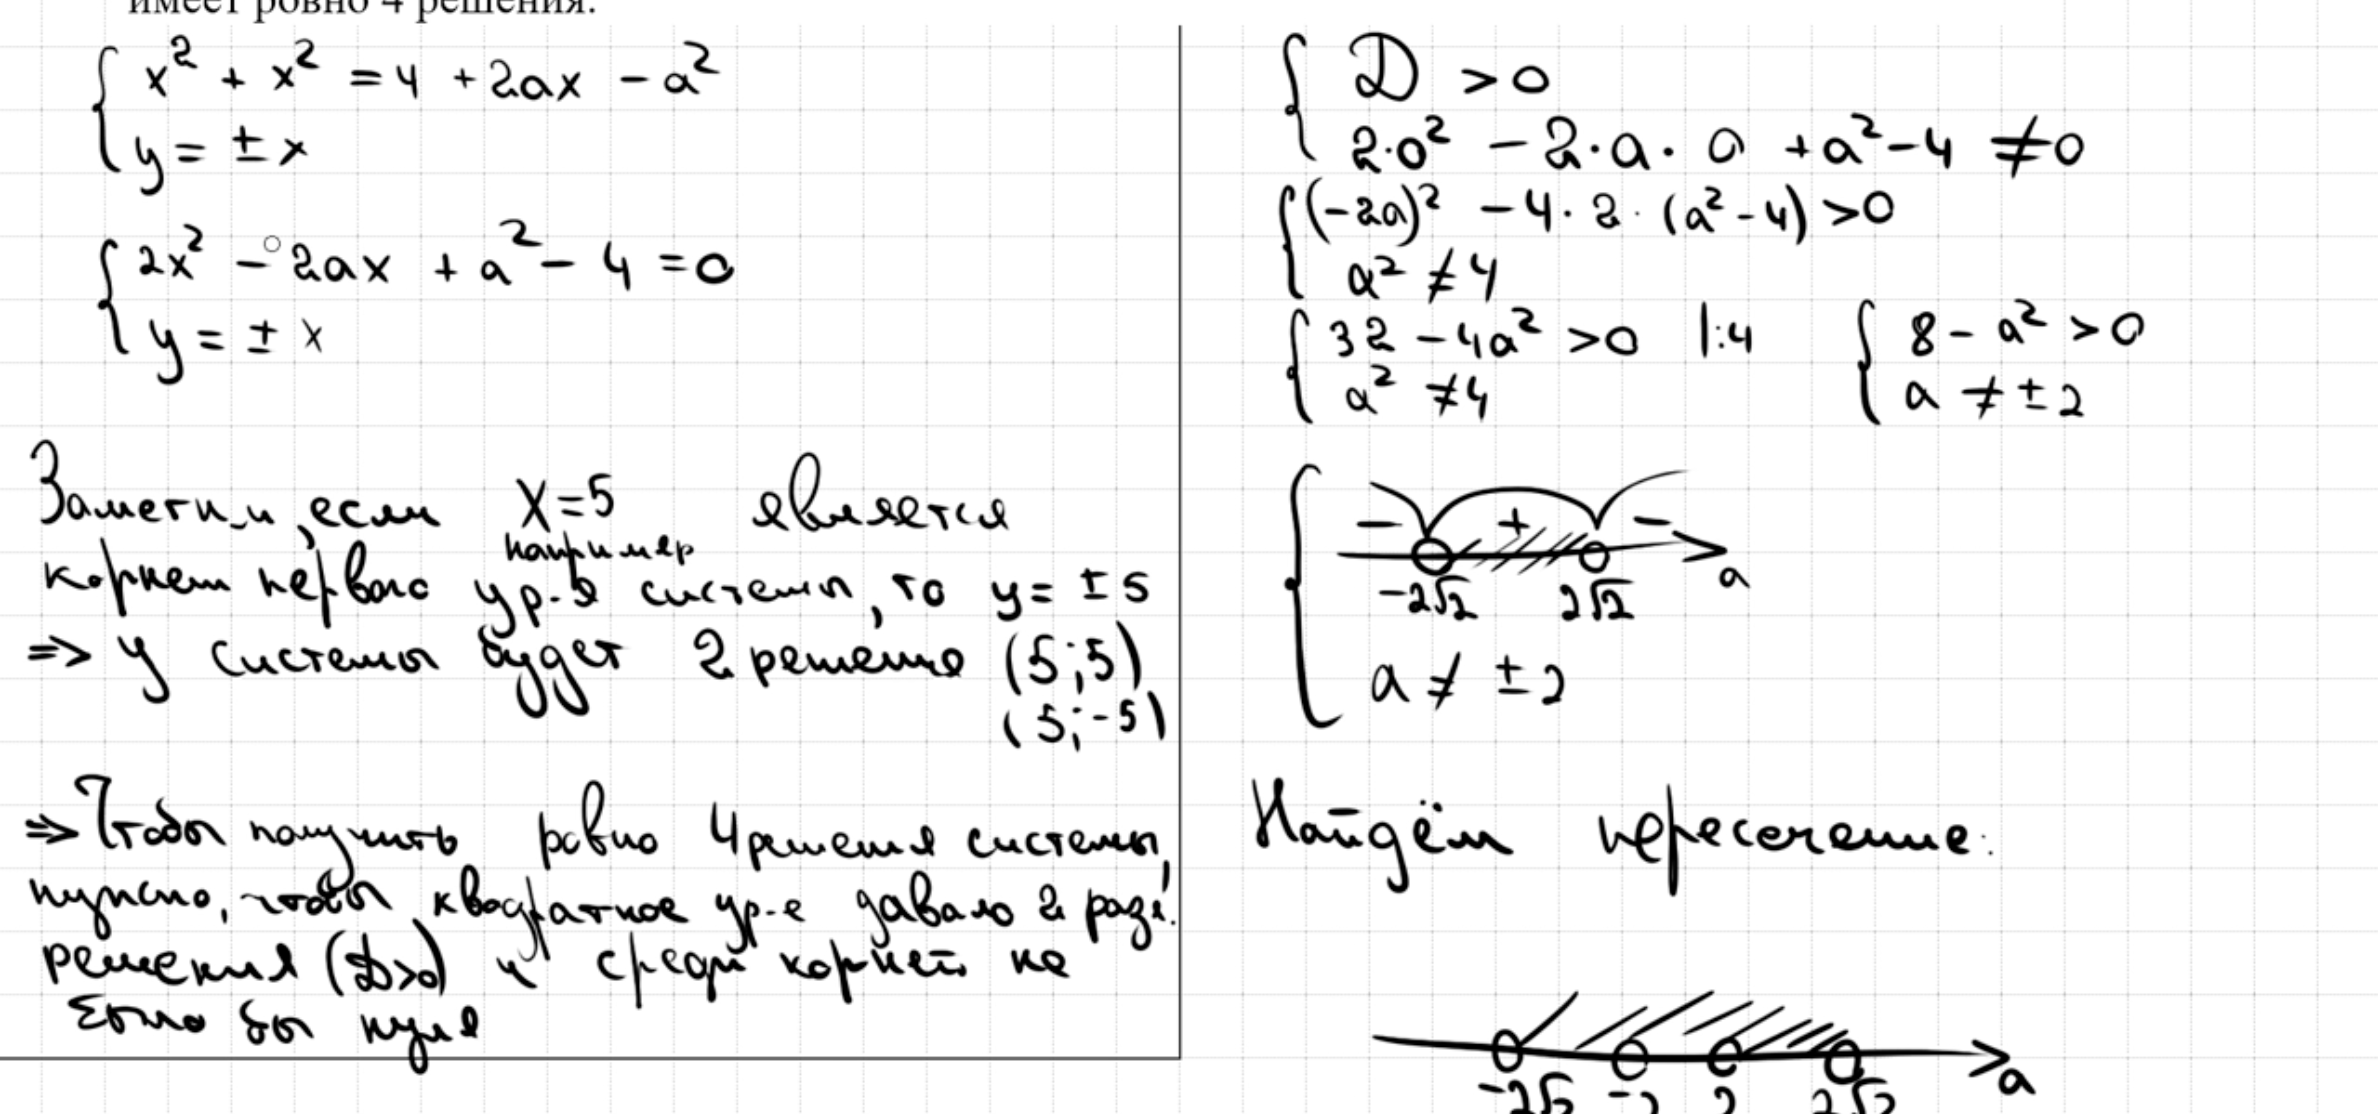 имеет ровно 4 решения.
x² + x² = 4 + 2ax - a²
y = ± x
2x² - 2ax + a² - 4 = 0
y = ± x
Заметим, если x = 5 является
например
корнем первого ур-я системы, то y = ± 5
=> у системы будет 2 решения (5; 5)
(5; -5)
=> Чтобы получить ровно 4 решения системы,
нужно, чтобы квадратное ур-е давало 2 разл.
решения (D>0) и среди корней не
было бы нуля
D > 0
2·0² - 2·a·0 + a² - 4 ≠ 0
(-2a)² - 4·2·(a² - 4) > 0
a² ≠ 4
32 - 4a² > 0 |:4
a² ≠ 4
8 - a² > 0
a ≠ ± 2
- + -
-2√2 2√2 a
a ≠ ± 2
Найдём пересечение:
-2√2 -2 2 2√2 a